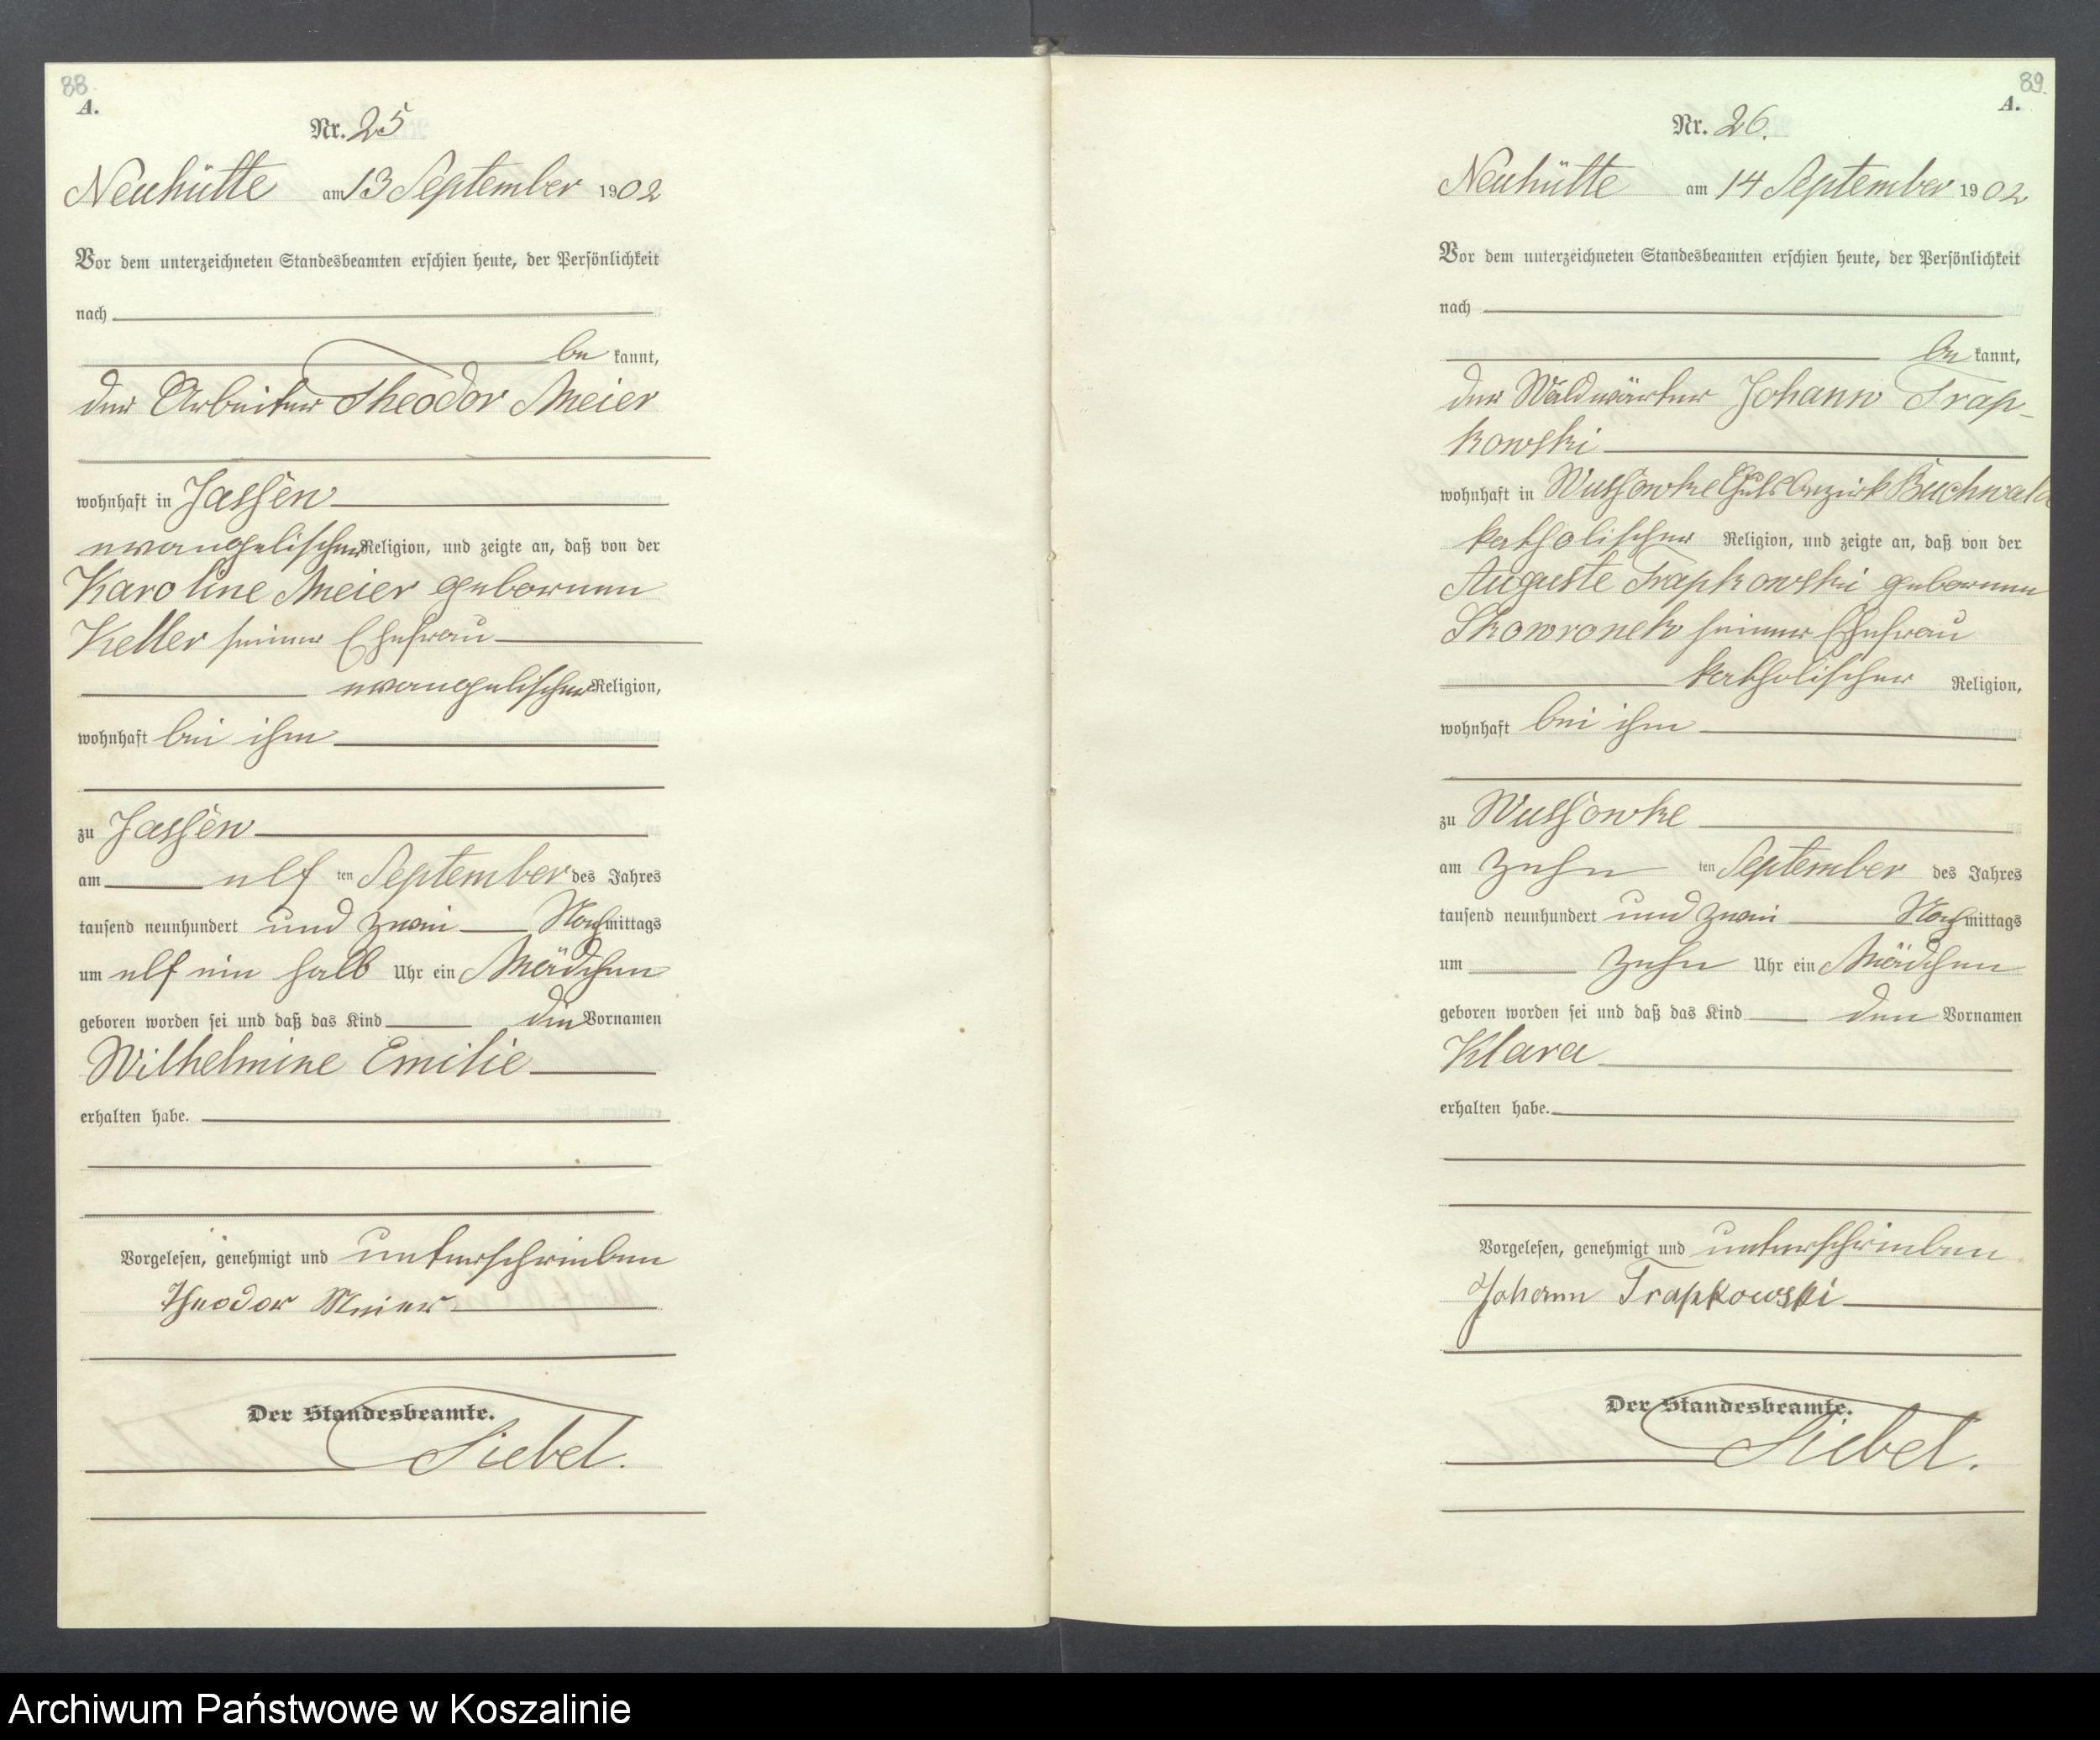 88
A.
Nr. 25
Neuhütte am 13 September 1902
Vor dem unterzeichneten Standesbeamten erschien heute, der Persönlichkeit
nach
be kannt,
der Arbeiter Theodor Meier
wohnhaft in Jassen
evangelischer Religion, und zeigte an, daß von der
Karoline Meier geborenen
Keller seiner Ehefrau
evangelischer Religion,
wohnhaft bei ihm
zu Jassen
am elf ten September des Jahres
tausend neunhundert und zwei Nachmittags
um elf ein halb Uhr ein Mädchen
geboren worden sei und daß das Kind die Vornamen
Wilhelmine Emilie
erhalten habe.
Vorgelesen, genehmigt und unterschrieben
Theodor Meier
Der Standesbeamte.
Siebel.
89.
A.
Nr. 26.
Neuhütte am 14 September 1902
Vor dem unterzeichneten Standesbeamten erschien heute, der Persönlichkeit
nach
be kannt,
der Waldwärter Johann Trap-
kowski
wohnhaft in Wussowke Gutsbezirk Buchwald
katholischer Religion, und zeigte an, daß von der
Auguste Trapkowski geborenen
Skowronek seiner Ehefrau
katholischer Religion,
wohnhaft bei ihm
zu Wussowke
am zehn ten September des Jahres
tausend neunhundert und zwei Nachmittags
um zehn Uhr ein Mädchen
geboren worden sei und daß das Kind den Vornamen
Klara
erhalten habe.
Vorgelesen, genehmigt und unterschrieben
Johann Trapkowski
Der Standesbeamte.
Siebel.
Archiwum Państwowe w Koszalinie